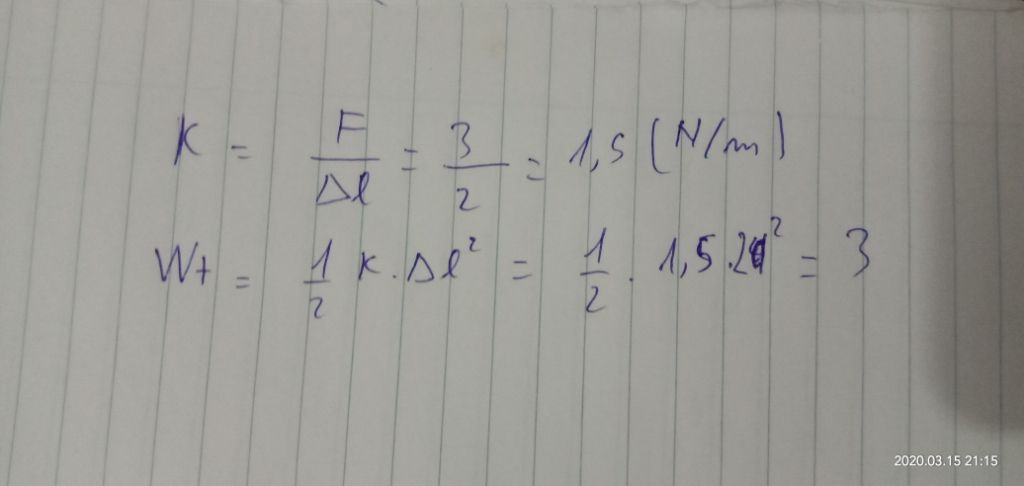 K = F/Δl = 3/2 = 1,5 (N/m)
Wt = 1/2 K.Δl² = 1/2 . 1,5.2² = 3
2020.03.15 21:15